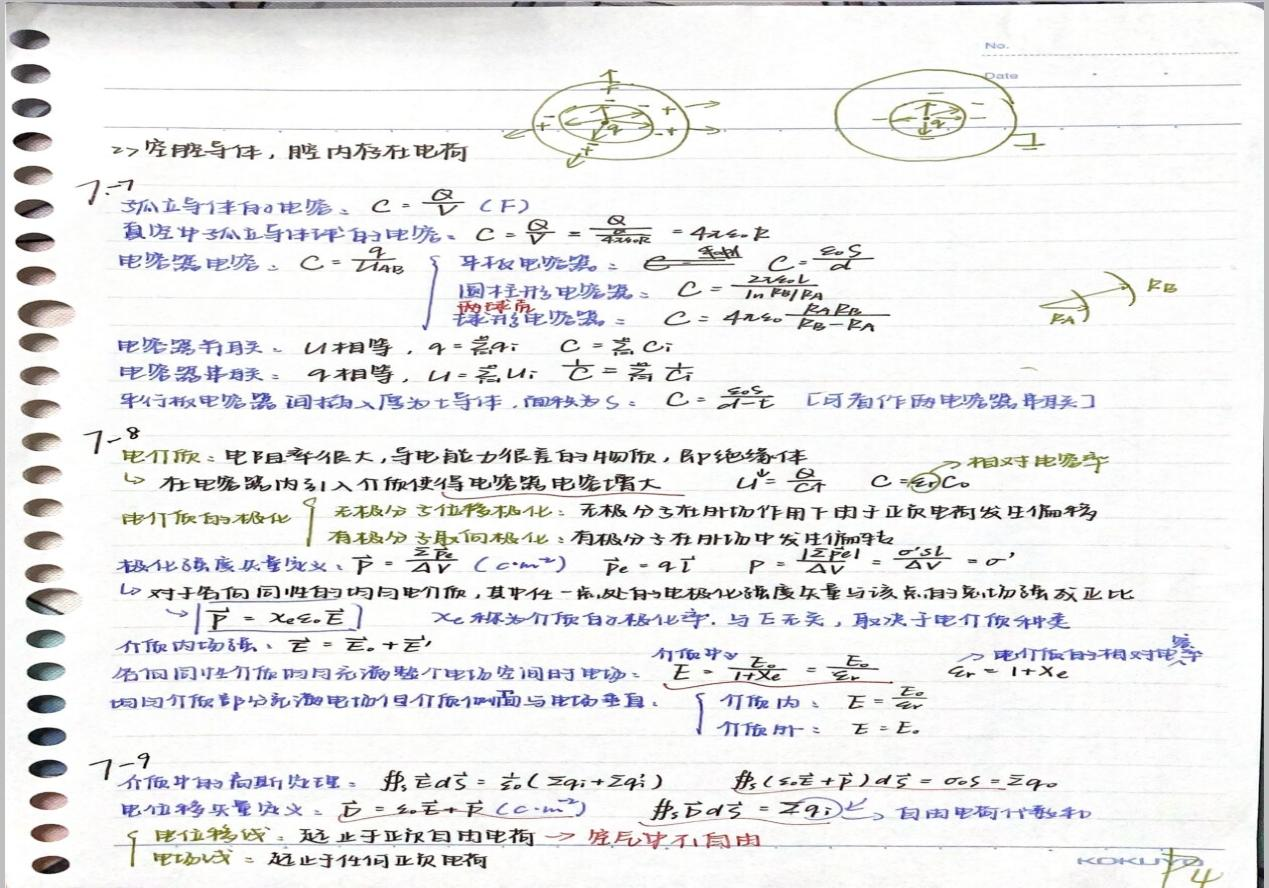 No.
Date
2> 空腔导体，腔内存在电荷
7-7
孤立导体的电容：C = Q/V (F)
真空中孤立导体球的电容：C = Q/V = Q/(Q/4πε₀R) = 4πε₀R
电容器电容：C = q/U_AB { 平板电容器： C = ε₀S/d
圆柱形电容器：C = 2πε₀l/(ln R_B/R_A)
两球壳
球形电容器：C = 4πε₀ R_A R_B/(R_B-R_A)
R_A R_B
电容器并联：U相等，q = Σqi C = ΣCi
电容器串联：q相等，U = ΣUi 1/C = Σ 1/Ci
平行板电容器间插入厚为t导体，面积为S： C = ε₀S/(d-t) [可看作两电容器串联]
7-8
电介质：电阻率很大，导电能力很差的物质，即绝缘体
↳ 在电容器内引入介质使得电容器电容增大 U↓ = Q/C↑ C = εrC₀ → 相对电容率
电介质的极化 { 无极分子位移极化：无极分子在外场作用下由于正负电荷发生偏移
有极分子取向极化：有极分子在外场中发生偏转
极化强度矢量定义：P⃗ = Σp⃗e/ΔV (C·m⁻²) p⃗e = ql⃗ P = |Σp⃗e|/ΔV = σ'Sl/ΔV = σ'
↳ 对于各向同性的均匀电介质，其中任一点处的电极化强度矢量与该点的总场强成正比
→ P⃗ = χeε₀E⃗ χe称为介质的极化率，与E无关，取决于电介质种类
介质内场强：E⃗ = E⃗₀ + E⃗'
各向同性介质均匀充满整个电场空间时电场：介质中 E = E₀/(1+χe) = E₀/εr εr = 1+χe → 电介质的相对电容率
均匀介质部分充满电场但介质侧面与电场垂直：{ 介质内： E = E₀/εr
介质外： E = E₀
7-9
介质中的高斯定理：∯s E⃗dS⃗ = 1/ε₀(Σqi+Σqi') ∯s(ε₀E⃗+P⃗)dS⃗ = σ₀S = Σq₀
电位移矢量定义：D⃗ = ε₀E⃗+P⃗ (C·m⁻²) ∯s D⃗dS⃗ = Σqi → 自由电荷代数和
{ 电位移线：起止于正负自由电荷 → 空气中不自由
电场线：起止于任何正负电荷
KOKUYO
P4